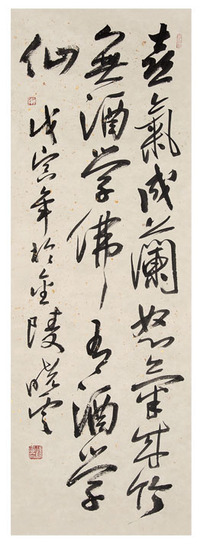 喜氣成蘭怒氣成竹
無酒学佛有酒学
仙
戊寅年於金陵晓雲